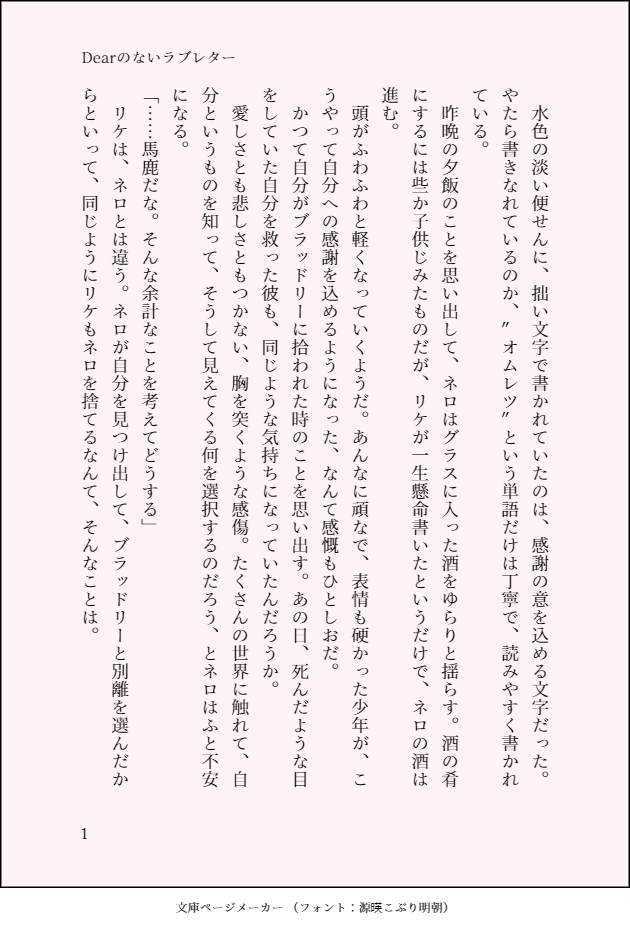 Dearのないラブレター
　水色の淡い便せんに、拙い文字で書かれていたのは、感謝の意を込める文字だった。
やたら書きなれているのか、〃オムレツ〃という単語だけは丁寧で、読みやすく書かれ
ている。
　昨晩の夕飯のことを思い出して、ネロはグラスに入った酒をゆらりと揺らす。酒の肴
にするには些か子供じみたものだが、リケが一生懸命書いたというだけで、ネロの酒は
進む。
　頭がふわふわと軽くなっていくようだ。あんなに頑なで、表情も硬かった少年が、こ
うやって自分への感謝を込めるようになった、なんて感慨もひとしおだ。
　かつて自分がブラッドリーに拾われた時のことを思い出す。あの日、死んだような目
をしていた自分を救った彼も、同じような気持ちになっていたんだろうか。
　愛しさとも悲しさともつかない、胸を突くような感傷。たくさんの世界に触れて、自
分というものを知って、そうして見えてくる何を選択するのだろう、とネロはふと不安
になる。
「……馬鹿だな。そんな余計なことを考えてどうする」
　リケは、ネロとは違う。ネロが自分を見つけ出して、ブラッドリーと別離を選んだか
らといって、同じようにリケもネロを捨てるなんて、そんなことは。
1
文庫ページメーカー（フォント：源暎こぶり明朝）